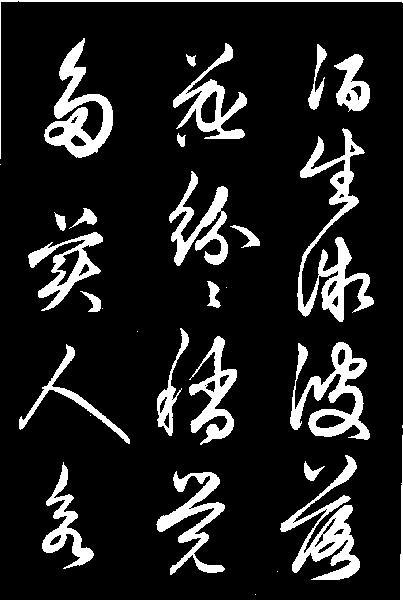 酒生微波落
蕊紛紛稍覺
多美人容